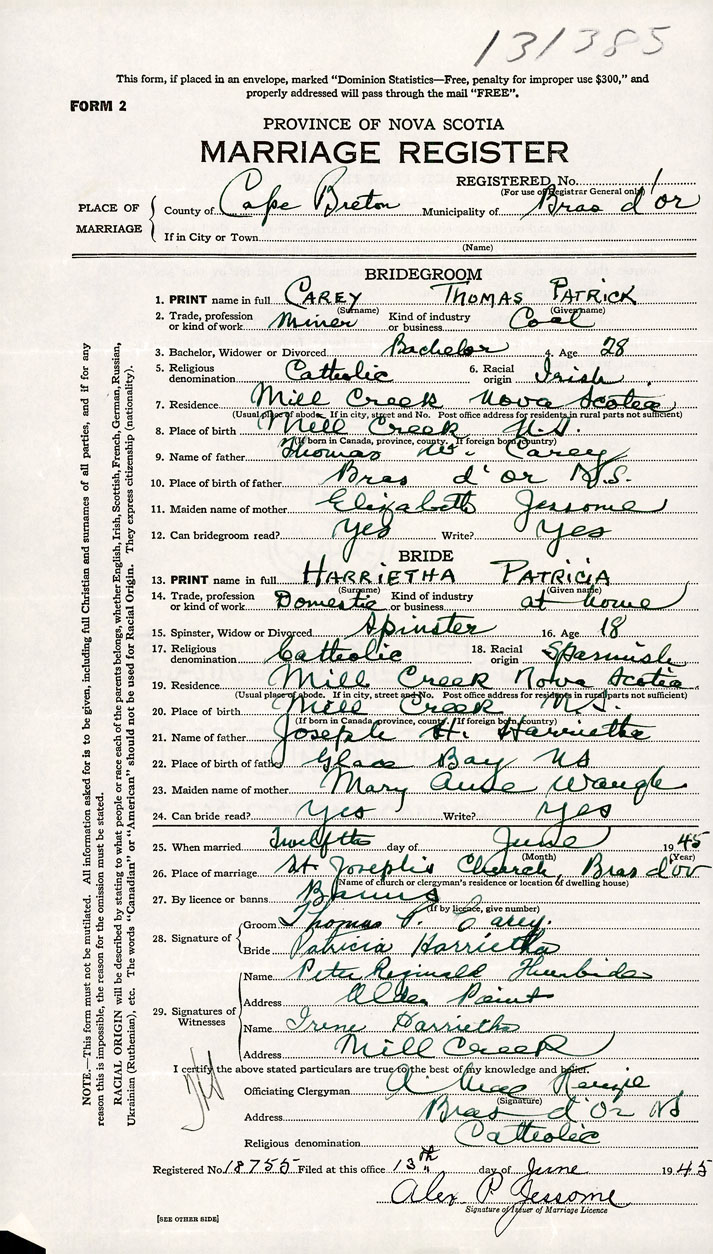 131385
This form, if placed in an envelope, marked "Dominion Statistics—Free, penalty for improper use $300," and
properly addressed will pass through the mail "FREE".
FORM 2
PROVINCE OF NOVA SCOTIA
MARRIAGE REGISTER
REGISTERED No.
(For use of Registrar General only)
PLACE OF MARRIAGE
County of Cape Breton Municipality of Bras d'or
If in City or Town
(Name)
BRIDEGROOM
1. PRINT name in full CAREY THOMAS PATRICK
(Surname) (Given name)
2. Trade, profession or kind of work Miner Kind of industry or business Coal
3. Bachelor, Widower or Divorced Bachelor 4. Age 28
5. Religious denomination Catholic 6. Racial origin Irish
7. Residence Mill Creek Nova Scotia
(Usual place of abode. If in city, street and No. Post office address for residents in rural parts not sufficient)
8. Place of birth Mill Creek N.S.
(If born in Canada, province, county. If foreign born, country)
9. Name of father Thomas W. Carey
10. Place of birth of father Bras d'or N.S.
11. Maiden name of mother Elizabeth Jessome
12. Can bridegroom read? Yes Write? Yes
BRIDE
13. PRINT name in full HARRIETHA PATRICIA
(Surname) (Given name)
14. Trade, profession or kind of work Domestic Kind of industry or business at home
15. Spinster, Widow or Divorced Spinster 16. Age 18
17. Religious denomination Catholic 18. Racial origin Spanish
19. Residence Mill Creek Nova Scotia
(Usual place of abode. If in city, street and No. Post office address for residents in rural parts not sufficient)
20. Place of birth Mill Creek N.S.
(If born in Canada province, county. If foreign born, country)
21. Name of father Joseph H. Harrietha
22. Place of birth of father Glace Bay NS
23. Maiden name of mother Mary Anne Waugh
24. Can bride read? Yes Write? Yes
25. When married Twelfth day of June 1945
(Month) (Year)
26. Place of marriage St Joseph's Church, Bras d'or
(Name of church or clergyman's residence or location of dwelling house)
27. By licence or banns Banns
(If by licence, give number)
28. Signature of
Groom Thomas P. Carey.
Bride Patricia Harrietha
29. Signatures of Witnesses
Name Peter Reginald
Address Alder Point
Name Irene Harrietha
Address Mill Creek
I certify the above stated particulars are true to the best of my knowledge and belief.
Officiating Clergyman A. MacKenzie
(Signature)
Address Bras d'Or NS
Religious denomination Catholic
Registered No. 18755 Filed at this office 13th day of June 1945
Alex P. Jessome
Signature of Issuer of Marriage Licence
[SEE OTHER SIDE]
NOTE.—This form must not be mutilated. All information asked for is to be given, including full Christian and surnames of all parties, and if for any
reason this is impossible, the reason for the omission must be stated.
RACIAL ORIGIN will be described by stating to what people or race each of the parents belongs, whether English, Irish, Scottish, French, German, Russian,
Ukrainian (Ruthenian), etc. The words "Canadian" or "American" should not be used for Racial Origin. They express citizenship (nationality).